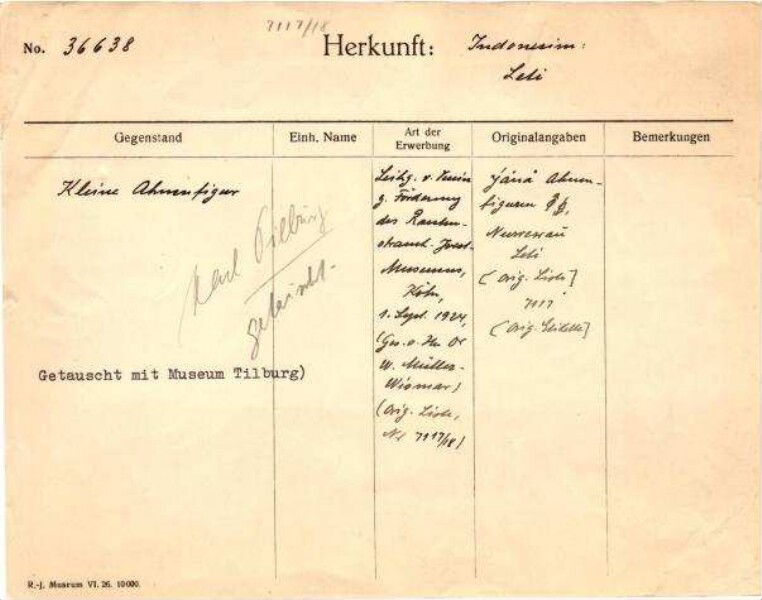 7117/18
No. 36638 Herkunft: Indonesien:
Leti
Gegenstand Einh. Name Art der Erwerbung Originalangaben Bemerkungen
Kleine Ahnenfigur
nach Tilburg
getauscht.
Getauscht mit Museum Tilburg)
Leihg. v. Verein
z. Förderung
des Rauten-
strauch-Joest-
Museums,
Köln,
1. Sept. 1924,
(Ges. v. Hn Dr
W. Müller-
Wismar)
(Orig. Liste,
Nr 7117/18)
Ahnen-
figuren
Leti
(Orig. Liste]
7117
(Orig. Etikette]
R.-J. Museum VI. 26. 10000.